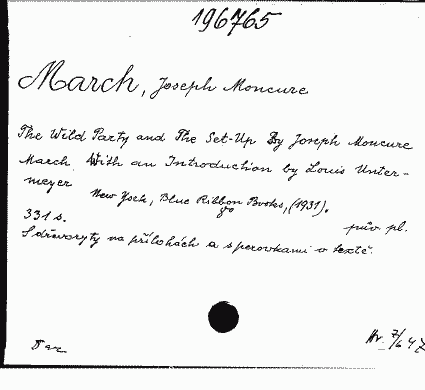 196765
March, Joseph Moncure
The Wild Party and The Set-Up By Joseph Moncure
March. With an Introduction by Louis Unter-
meyer
New York, Blue Ribbon Books, (1931).
8o
331 s.
pův. pl.
S dřevoryty na přílohách a s perovkami v textě.
Dar
Hr. 7/6 47